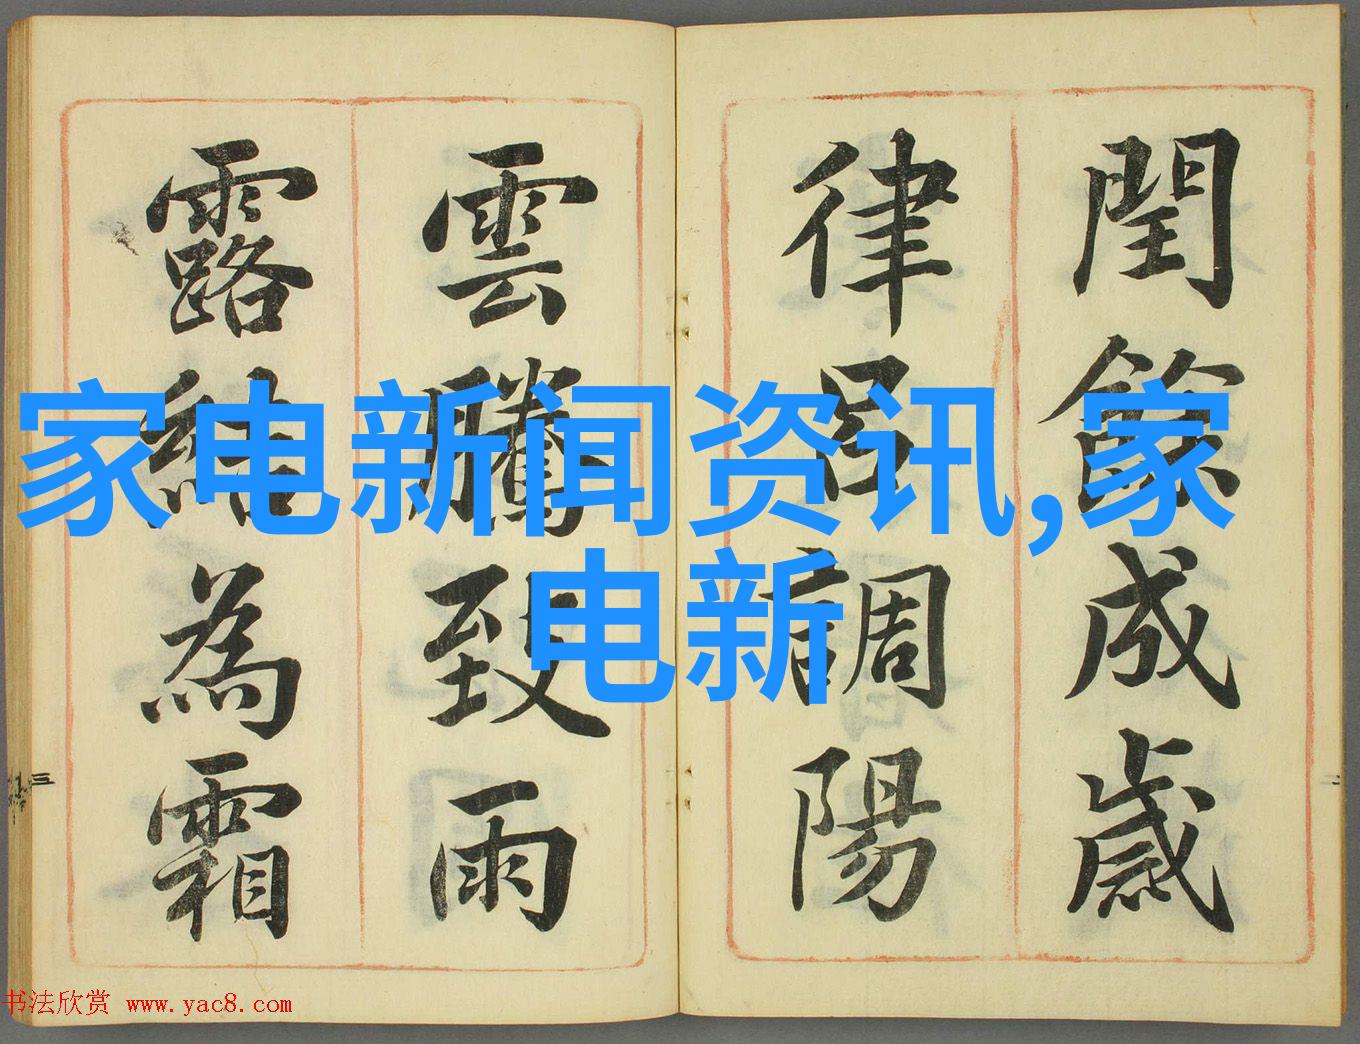 閏餘成歲
律吕調陽
雲騰致雨
露結為霜
家电新闻资讯,家
电新
三
二
书法欣赏 www.yac8.com